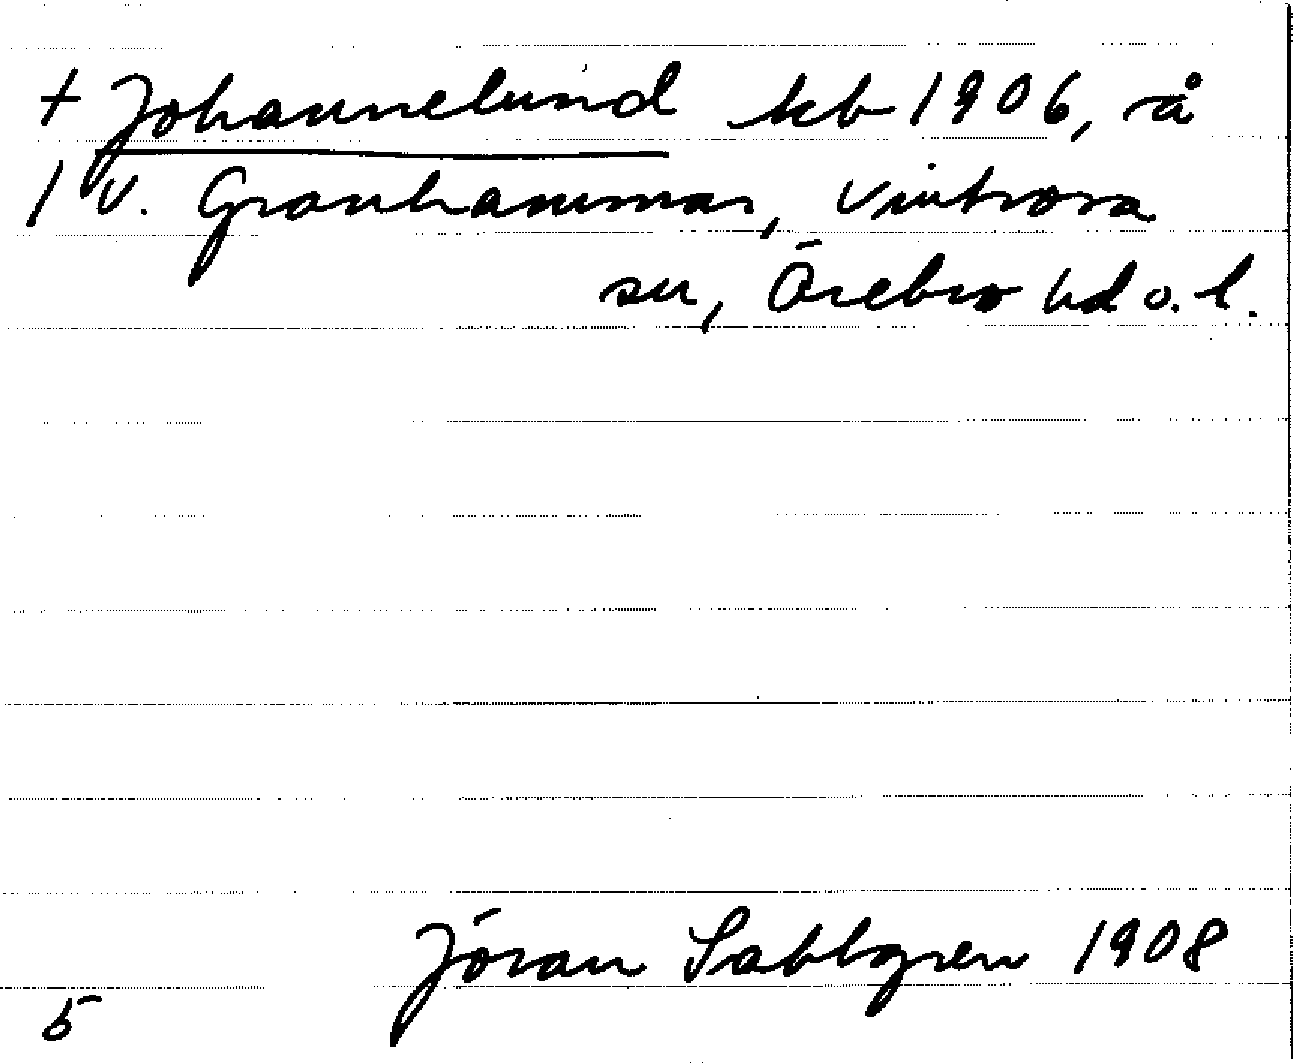 + Johannelund kb 1906, å
1 V. Granhammar, Vintrosa
sn, Örebro hd o. l.
Jöran Sahlgren 1908
5